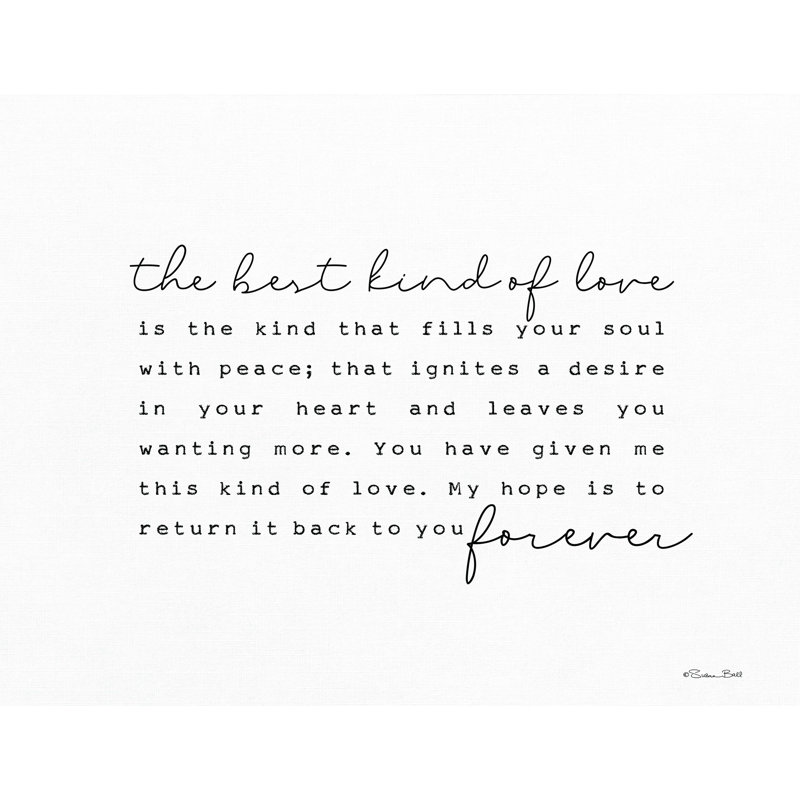 the best kind of love
is the kind that fills your soul
with peace; that ignites a desire
in your heart and leaves you
wanting more. You have given me
this kind of love. My hope is to
return it back to you forever
©Susan Ball